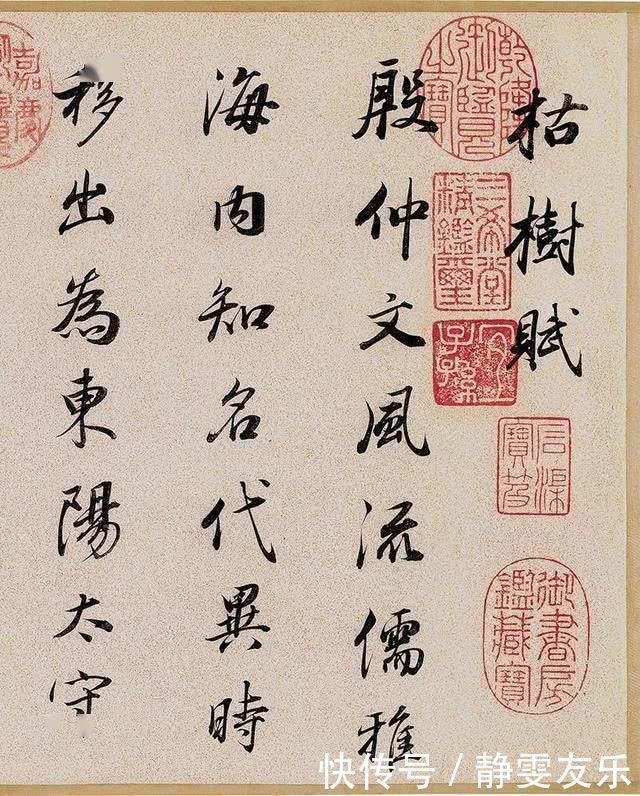 枯樹賦
殷仲文風流儒雅
海内知名代異時
移出為東陽太守
乾隆御覽之寶
三希堂精鑑璽
宜子孫
石渠寶笈
御書房鑑藏寶
嘉慶御覽之寶
快传号/静雯友乐